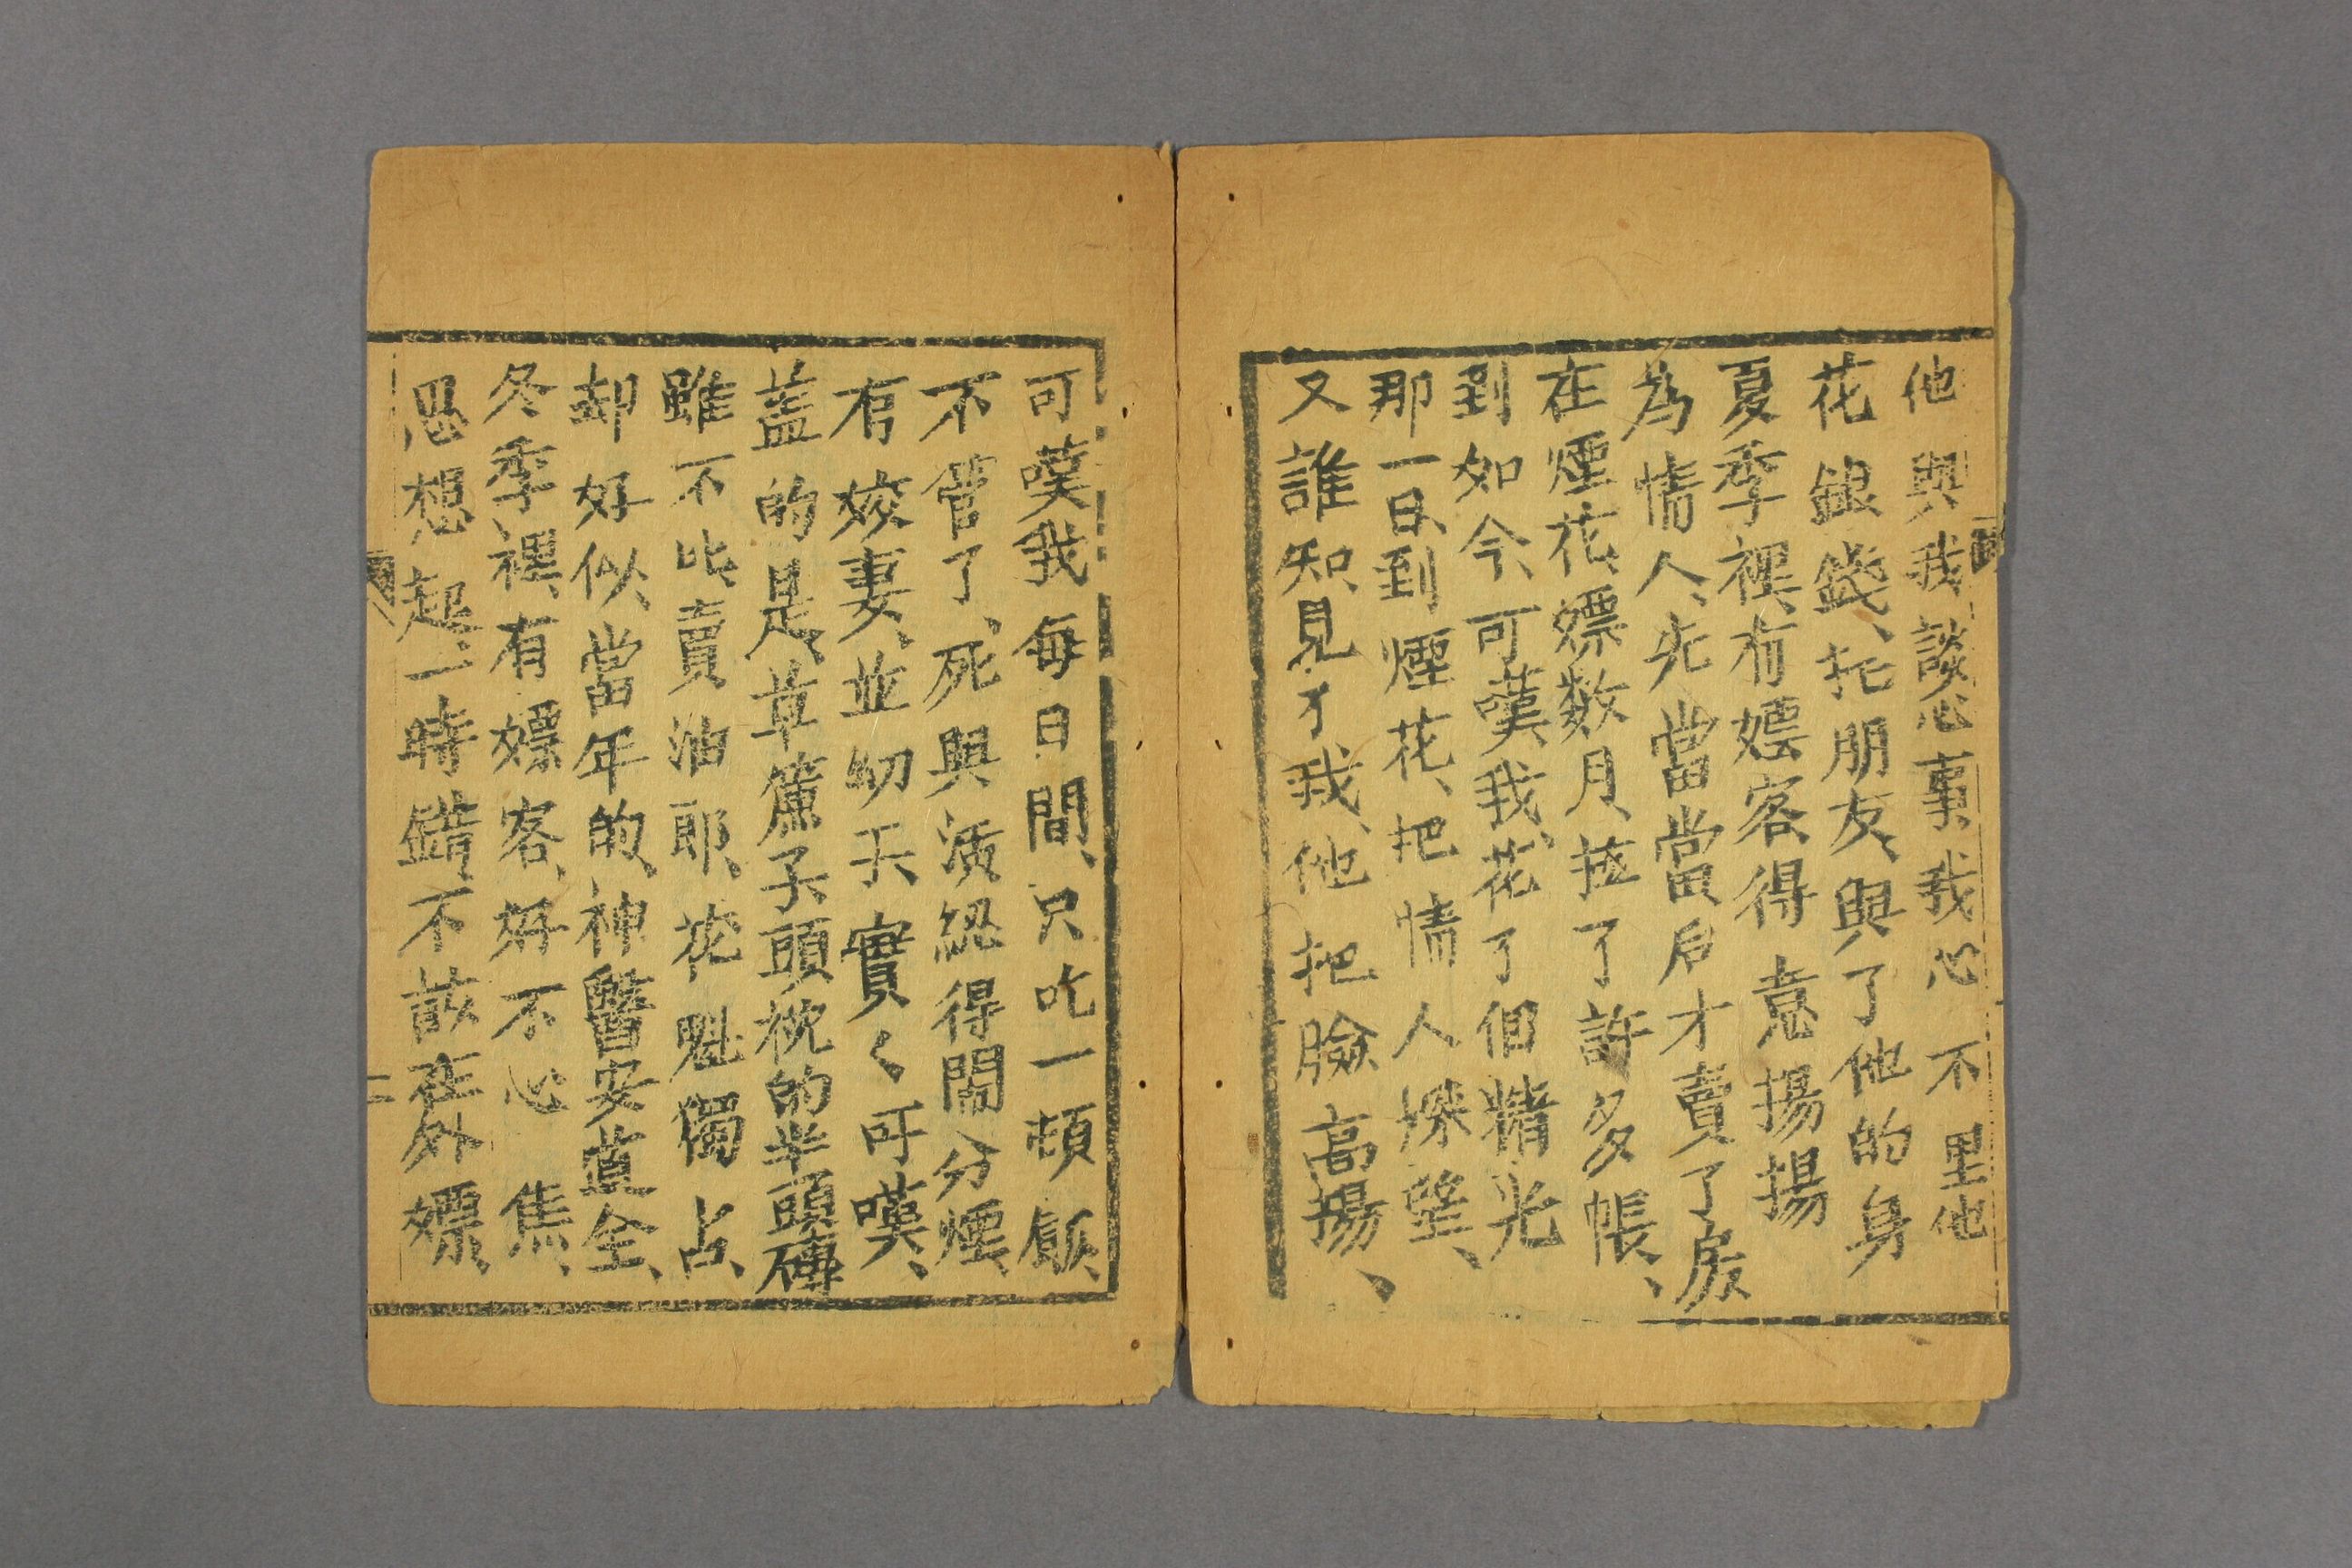 他與我談心事、我心不里他
花銀錢、托朋友、與了他的身
夏季裡、有嫖客得意揚揚
為情人、先當當后才賣了房
在煙花、嫖数月、拉了許多帳、
到如今、可嘆我、花了個精光
那一日、到煙花、把情人探望、
又誰知、見了我、他把臉高揚、
可嘆我每日間、只吃一頓飯、
不管了、死與活総得鬧分煙、
有姣妻、並幼子、實々可嘆、
蓋的是、草簾子頭枕的半頭磚
雖不比賣油郎、花魁獨占、
却好似、當年的、神醫安道全、
冬季裡、有嫖客、好不心焦、
思想起、一時錯、不該在外嫖、
二